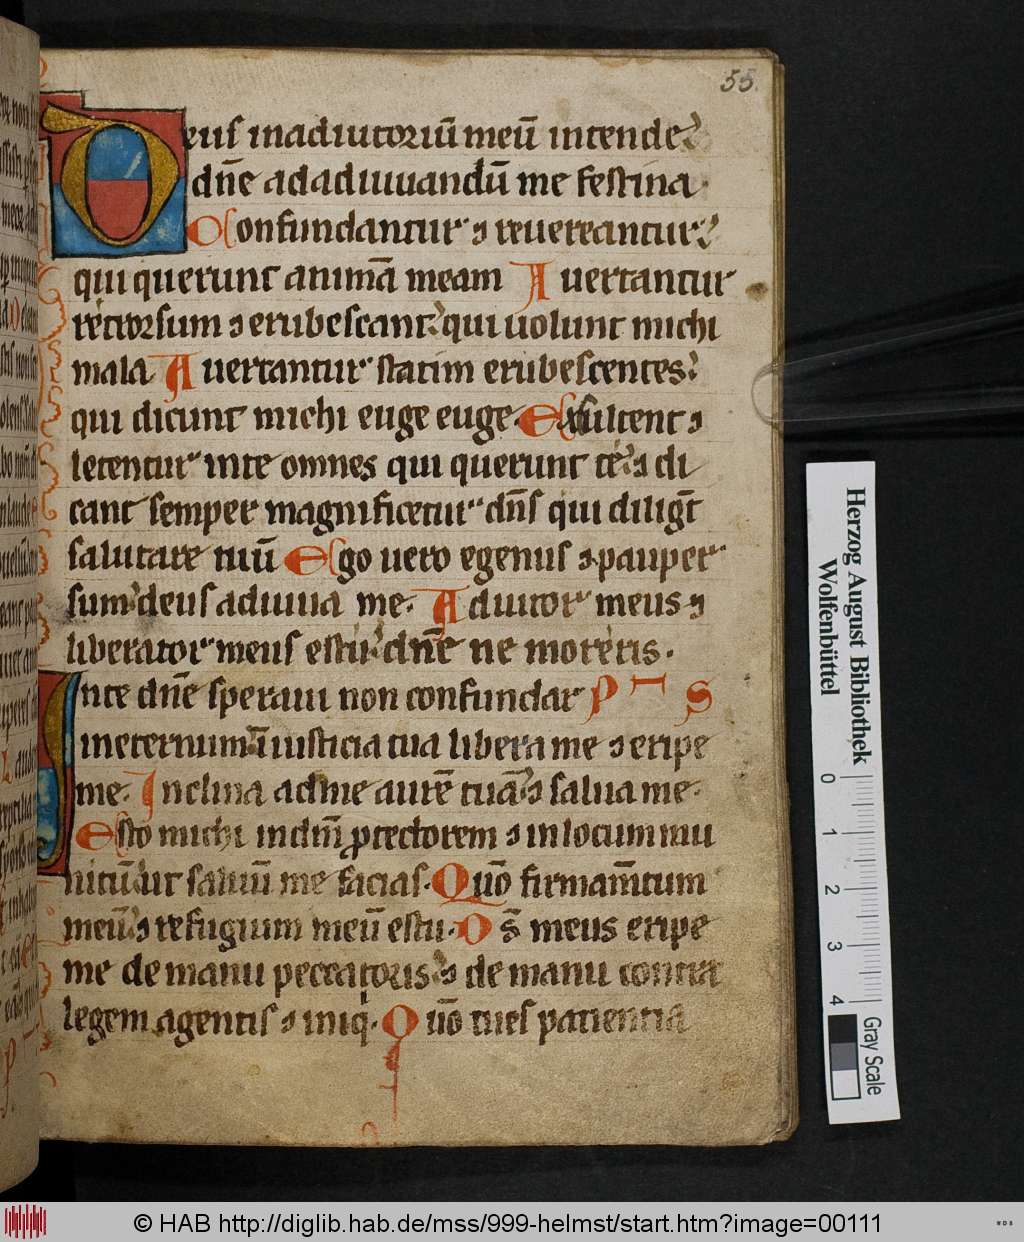 55.
Deus in adiutoriū meū intende
dn̄e ad adiuuandū me festina.
Confundantur ⁊ reuereantur
qui querunt animā meam Auertantur
retrorsum ⁊ erubescant qui uolunt michi
mala Auertantur statim erubescentes
qui dicunt michi euge euge. Exsultent ⁊
letentur in te omnes qui querunt te ⁊ di
cant semper magnificetur dn̄s qui diligt̄
salutare tuū Ego uero egenus ⁊ pauper
sum deus adiuua me. Adiutor meus ⁊
liberator meus es tu dn̄e ne moreris.
In te dn̄e speraui non confundar PS
in eternum in iusticia tua libera me ⁊ eripe
me. Inclina ad me aurē tuā ⁊ salua me.
Esto michi in dm̄ ꝓtectorem ⁊ in locum mu
nitū ut saluū me facias. Quō firmam̄tum
meū ⁊ refugium meū es tu. Ds̄ meus eripe
me de manu peccatoris ⁊ de manu contra
legem agentis ⁊ iniq. Quō tu es patientia
Herzog August Bibliothek
Wolfenbüttel
0 1 2 3 4
Gray Scale
© HAB http://diglib.hab.de/mss/999-helmst/start.htm?image=00111